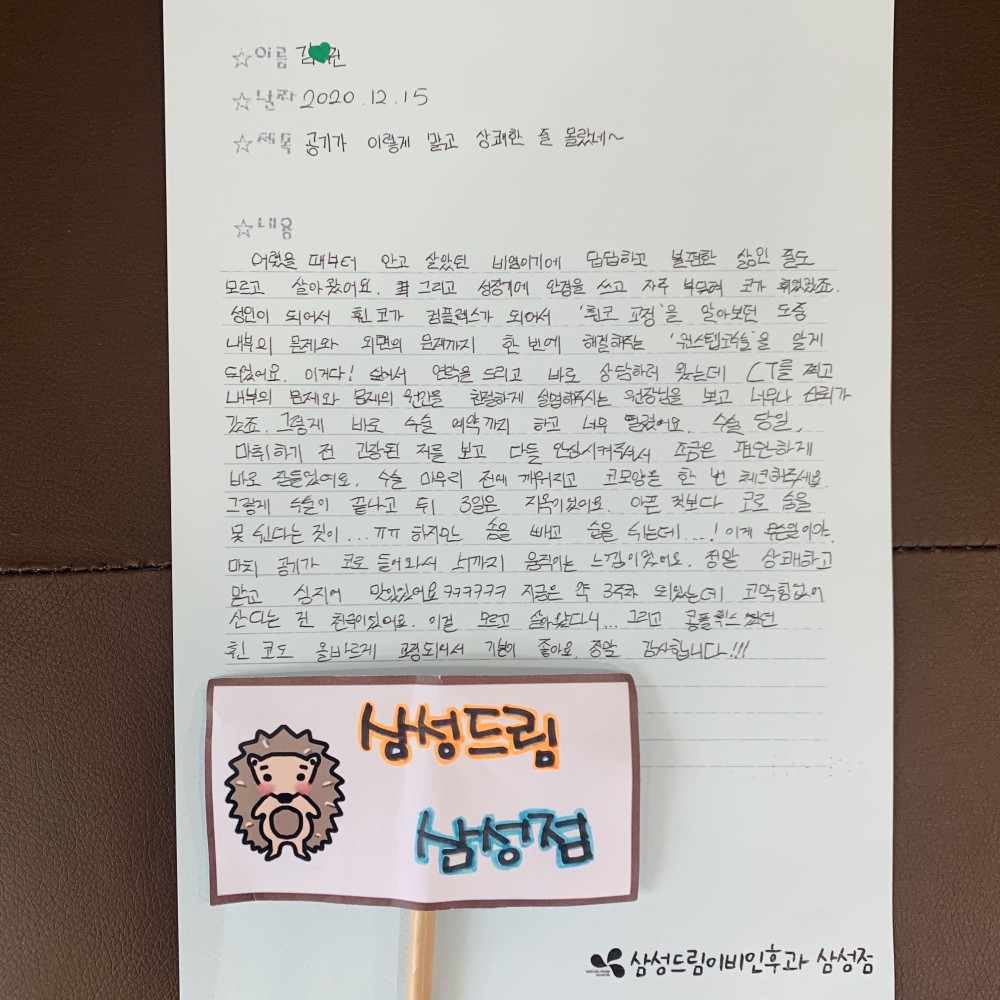 ☆이름 김 권
☆날짜 2020.12.15
☆제목 공기가 이렇게 맑고 상쾌한 줄 몰랐네~
☆내용
어렸을 때부터 안고 살았던 비염이기에 답답하고 불편한 삶인 줄도
모르고 살아왔어요. 그리고 성장기에 안경을 쓰고 자주 부딪혀 코가 휘었었죠.
성인이 되어서 휜 코가 컴플렉스가 되어서 '휜코 교정'을 알아보던 도중
내부의 문제와 외면의 문제까지 한 번에 해결해주는 '원스텝코수술'을 알게
되었어요. 이거다! 싶어서 연락을 드리고 바로 상담하러 왔는데 CT를 찍고
내부의 문제와 문제의 원인을 친절하게 설명해주시는 원장님을 보고 너무나 신뢰가
갔죠. 그렇게 바로 수술 예약까지 하고 너무 떨렸어요. 수술 당일,
마취하기 전 긴장된 저를 보고 다들 안심시켜주셔서 조금은 편안하게
바로 잠들었어요. 수술 마무리 전에 깨워지고 코모양을 한 번 체크해주세요.
그렇게 수술이 끝나고 뒤 3일은 지옥이었어요. 아픈 것보다 코로 숨을
못 쉰다는 것이...ㅠㅠ 하지만 솜을 빼고 숨을 쉬는데...! 이게 무슨일이야.
마치 공기가 코로 들어와서 뇌까지 움직이는 느낌이었어요. 정말 상쾌하고
맑고 심지어 맛있었어요ㅋㅋㅋㅋㅋㅋ 지금은 약 3주차 되었는데 코막힘없이
산다는 건 천국이었어요. 이걸 모르고 살아왔다니... 그리고 콤플렉스였던
휜 코도 올바르게 교정되어서 기분이 좋아요. 정말 감사합니다!!!
삼성드림
삼성점
삼성드림이비인후과 삼성점